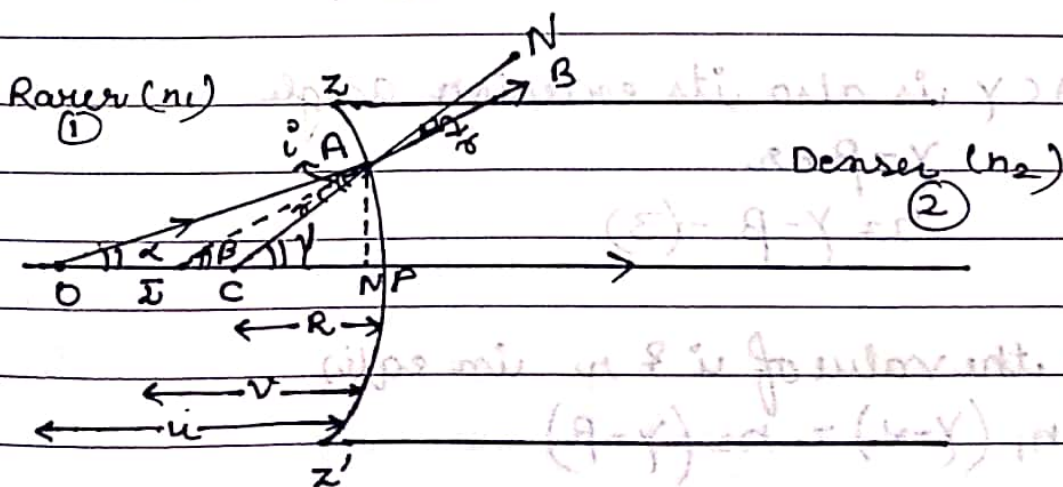 N
Rarer (n1) Z B
① i A r
Denser (n2)
r ②
α β γ
O I C N P
R
v
u
Z'